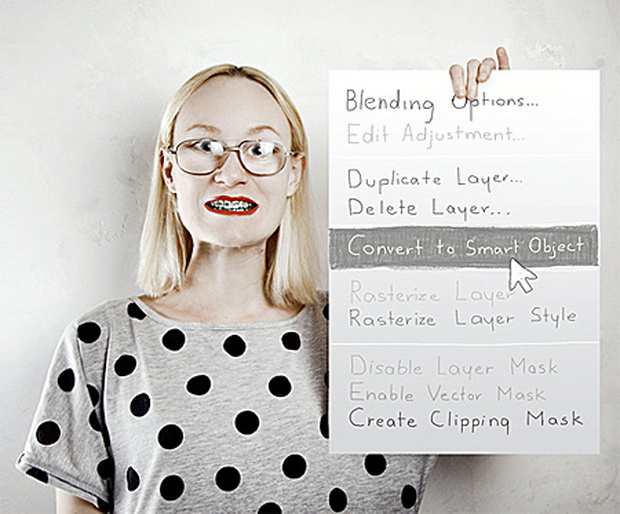 Blending Options...
Edit Adjustment...
Duplicate Layer...
Delete Layer...
Convert to Smart Object
Rasterize Layer
Rasterize Layer Style
Disable Layer Mask
Enable Vector Mask
Create Clipping Mask